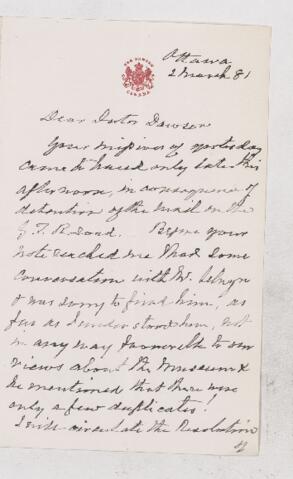 Ottawa
2 March 81
Dear Doctor Dawson
Your missives of yesterday
came to hand only late this
afternoon, in consequence of
detention of the mail on the
G. T. R. Road. Before your
note reached me I had some
conversation with Mr. Selwyn
& was sorry to find him, as
far as I understood him, not
in any way favourable to our
views about the Museum &
he mentioned that there were
only a few duplicates!
I will circulate the Resolution
of